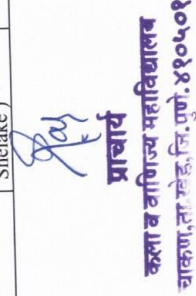 Shelake )
प्राचार्य
कला व वाणिज्य महाविद्यालय
चाकण,ता.खेड,जि.पुणे.४१०५०१